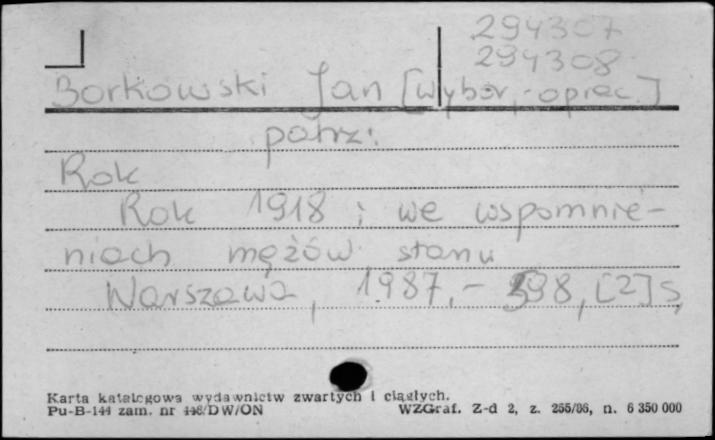 294307
294308
Borkowski Jan [wybór, oprac.]
patrz:
Rok
Rok 1918 : we wspomnie-
niach mężów stanu
Warszawa, 1987. - 398, [2] s,
Karta katalogowa wydawnictw zwartych i ciągłych.
Pu-B-144 zam. nr 448/DW/ON WZGraf. Z-d 2, z. 255/86, n. 6 350 000